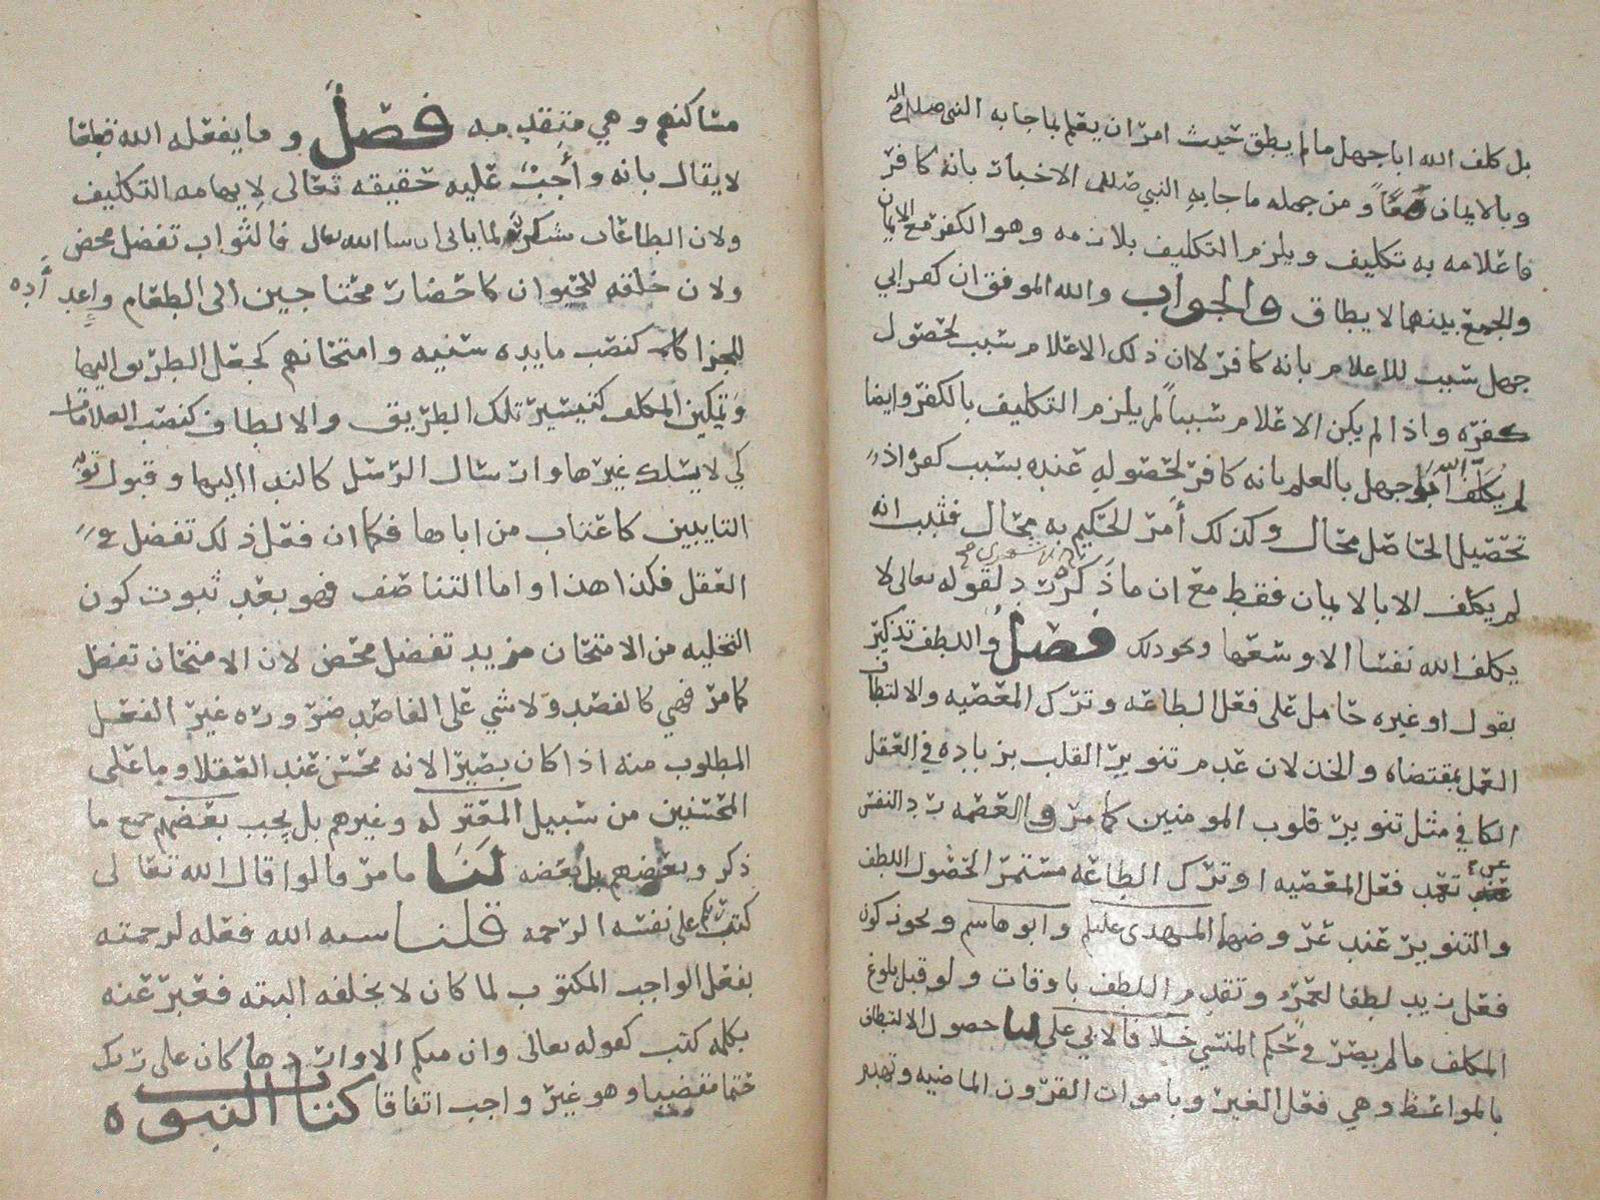 بل كلف الله ابا جهل ما لم يطق حيث امر ان يعلم بما جا به النبي صلى الله
وبالايمان معًا و من جمله ما جا به النبي صللم الاخبار بانه كافر
فاعلامه به تكليف ويلزم التكليف بلازمه وهو الكفر مع الايمان
والجمع بينهما لا يطاق والجواب والله الموفق ان كفر ابي
جهل سبب للاعلام بانه كافر لا ان ذلك الاعلام سبب لحصول
كفره واذا لم يكن الاعلام سببًا لم يلزم التكليف بالكفر وايضا
لم يكلف الله ابا جهل بالعلم بانه كافر لحصوله عنده بسبب كفره اذ
تحصيل الحاصل محال وكذلك أمر الحكيم به محال فثبت انه
لم يكلف الا بالايمان فقط مع ان ما ذكره رد لقوله تعالى لا
يكلف الله نفسا الا وسعها ونحو ذلك فصل واللطف تذكير
بقول او غيره حامل على فعل الطاعه وترك المعصيه والالتطاف
العمل بمقتضاه والخذلان عدم تنوير القلب بزياده في العقل
الكافي مثل تنوير قلوب المومنين كما مر والعصمه رد النفس
عن تعمد فعل المعصيه او ترك الطاعه مستمرا لحصول اللطف
والتنوير عند عروضهما المهدي عليلم وابو هاشم ويجوز كون
فعل زيد لطفا لعمرو وتقدم اللطف باوقات ولو قبل بلوغ
المكلف ما لم يصر في حكم المنسي خلافا لابي علي لنا حصول الالتطاف
بالمواعظ وهي فعل الغير وباموات القرون الماضيه وتهدم
مساكنهم وهي متقدمه فصل وما يفعله الله قطعا
لا يقال بانه واجب عليه حقيقه تعالى لايهامه التكليف
ولان الطاعات شكر لما ياتي ان شا الله تعال فالثواب تفضل محض
ولان خلقه للحيوان كاحضار محتاجين الى الطعام واعداده
للجزا كنصب مايده سنيه وامتحانهم كجعل الطريق اليها
وتمكين المكلف كتيسير تلك الطريق والالطاف كنصب العلامات
كي لا يسلك غيرها وارسال الرسل كالندا اليها وقبول توبه
التايبين كاعتاب من اباها فكما ان فعل ذلك تفضل في
العقل فكذا هذا واما التناصف فهو بعد ثبوت كون
التخليه من الامتحان مزيد تفضل محض لان الامتحان تفضل
كما مر فهي كالفصد ولا شي على الفاصد ضروره غير الفعل
المطلوب منه اذا كان بصيرا لانه محسن عند العقلا وما على
المحسنين من سبيل المعتزله وغيرهم بل يجب بعضهم جمع ما
ذكر وبعضهم بل بعضه لنا ما مر قالوا قال الله تعالى
كتب ربكم على نفسه الرحمه قلنا شبه الله فعله لرحمته
بفعل الواجب المكتوب لما كان لا يخلفه البته فعبر عنه
بكلمه كتب كقوله تعالى وان منكم الا واردها كان على ربك
حتما مقضيا وهو غير واجب اتفاقا كتاب النبوه